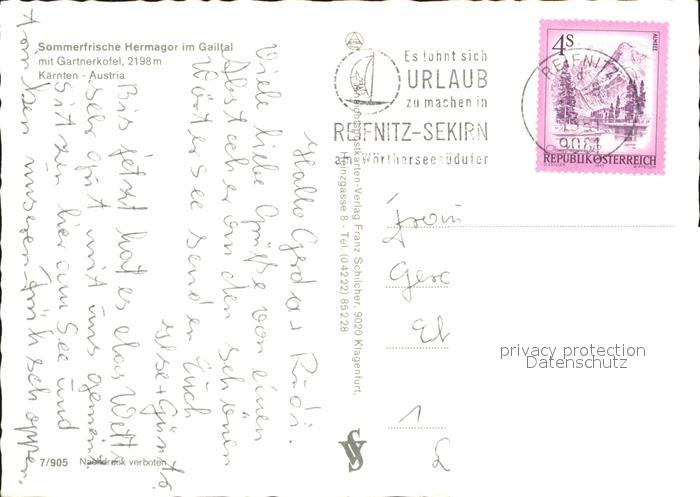 Sommerfrische Hermagor im Gailtal
mit Gartnerkofel, 2198 m
Kärnten - Austria
Hallo Gerda + Rudi.
Viele liebe Grüße von einem
Abstecher an den schönen
Wörtersee senden Euch
Ilse + Günter
Bis jetzt hat es das Wetter
sehr gut mit uns gemeint
sitzen hier am See und
trinken unseren Frühschoppen.
7/905 Nachdruck verboten
Ansichtskarten-Verlag Franz Schilcher, 9020 Klagenfurt,
Heinzgasse 8 - Tel. (04222) 85228
Es lohnt sich
URLAUB
zu machen in
REIFNITZ-SEKIRN
am Wörthersee südufer
4S
ALMSEE
REPUBLIK ÖSTERREICH
REIFNITZ
9081
Frau
Ger
1
privacy protection
Datenschutz